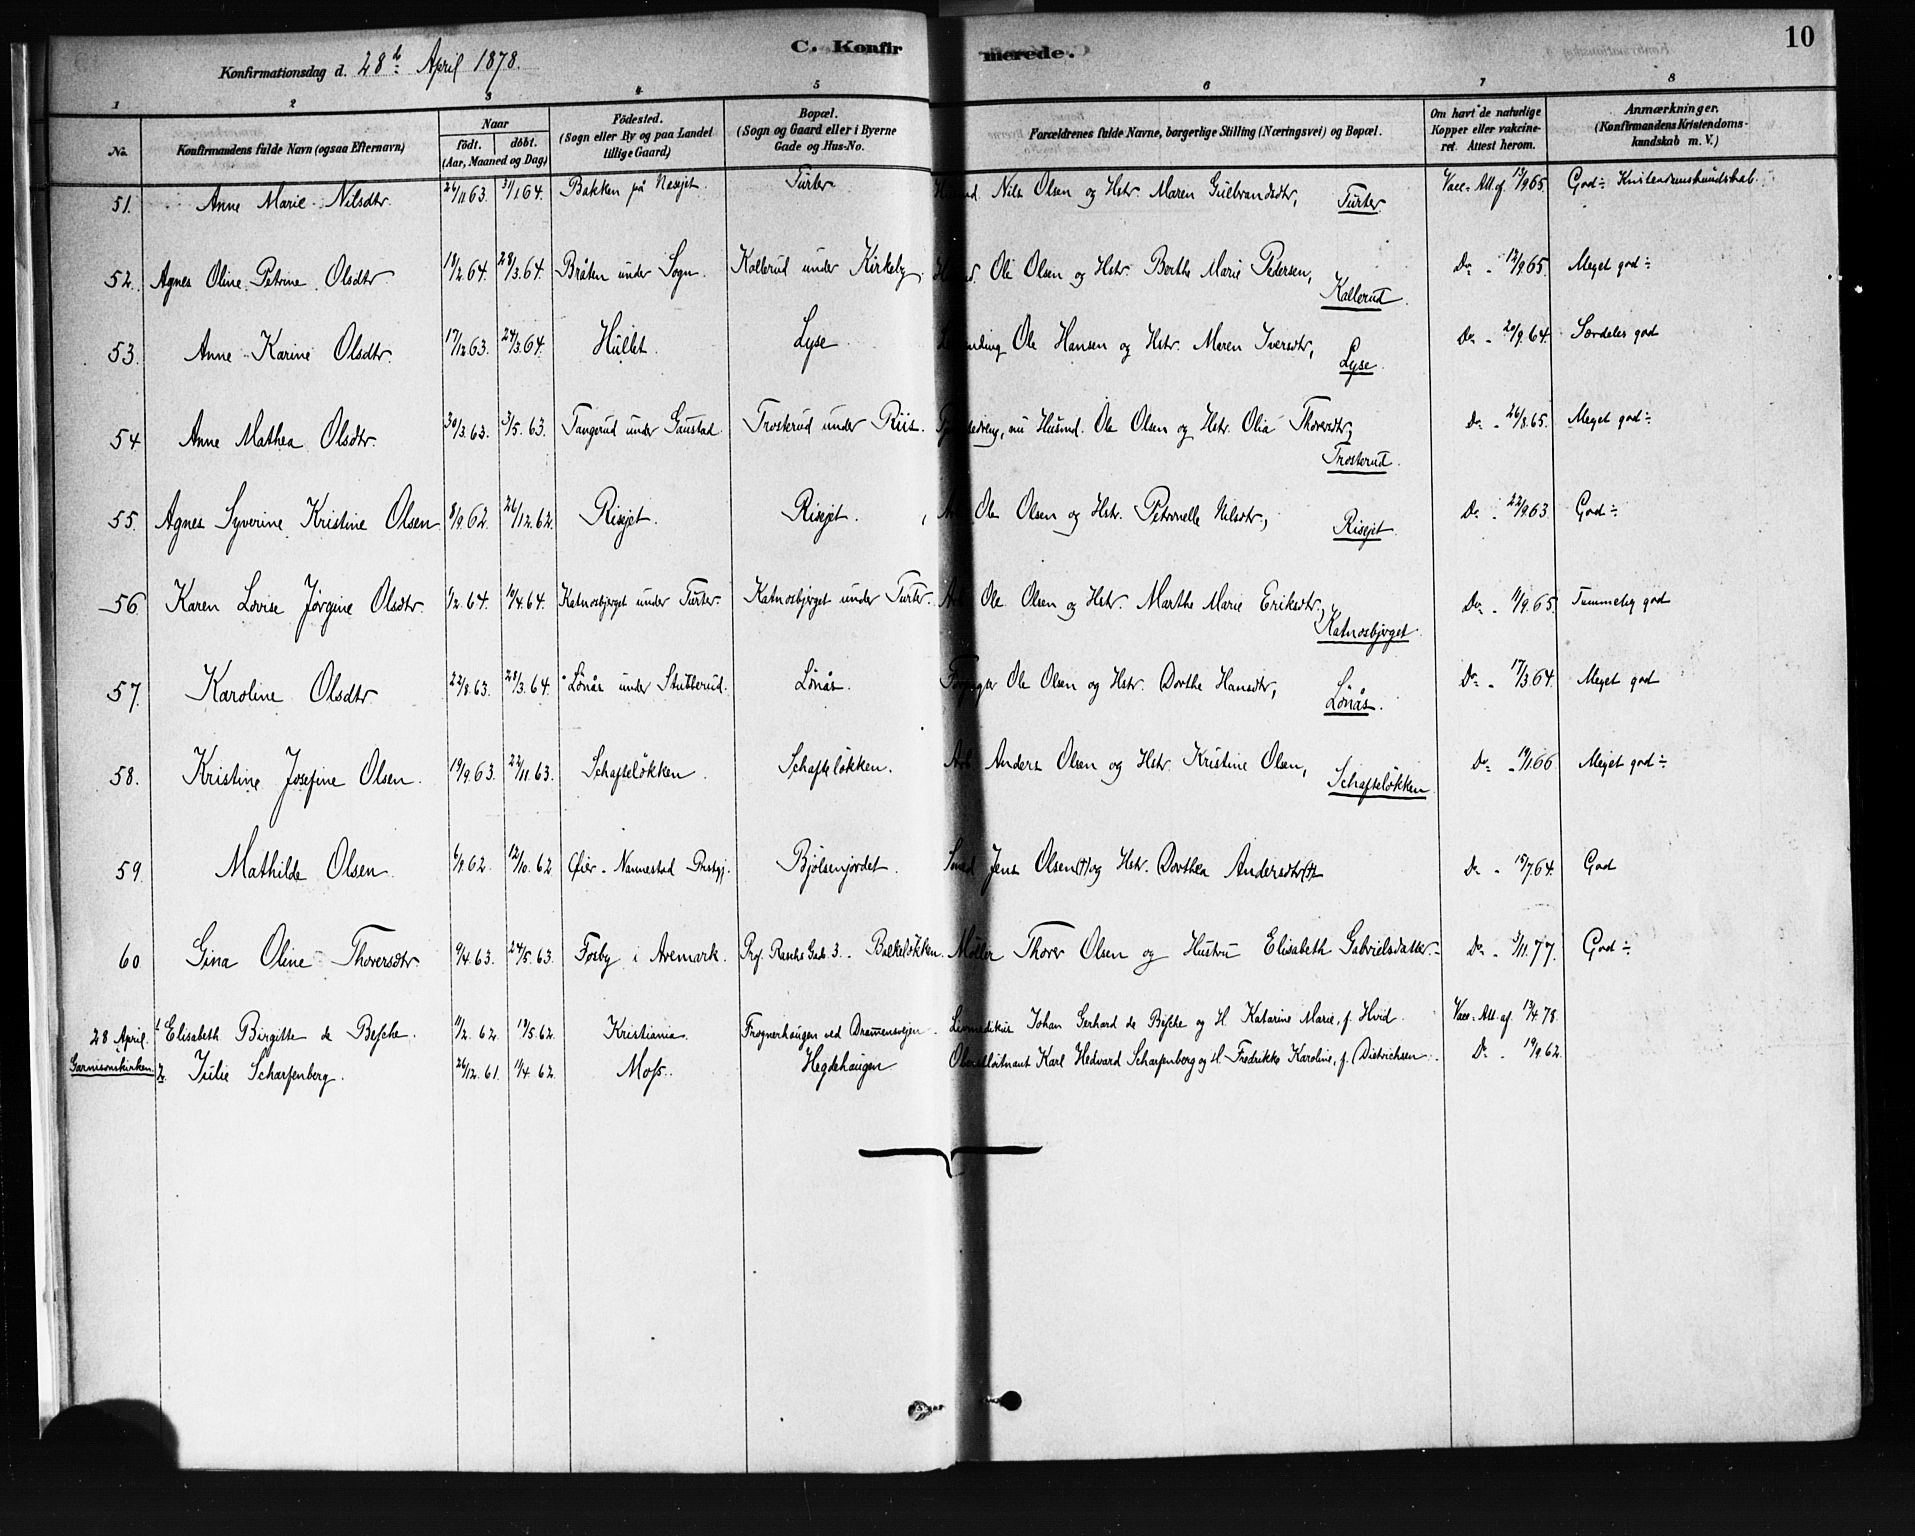 10
C. Konfir merede.
Konfirmationsdag d. 28de April 1878.
1 2 3 4 5 6 7 8
No.
Konfirmandens fulde Navn (ogsaa Efternavn)
Naar
födt. döbt.
(Aar, Maaned og Dag)
Födested.
(Sogn eller By og paa Landet
tillige Gaard)
Bopæl.
(Sogn og Gaard eller i Byerne
Gade og Hus-No.
Forældrenes fulde Navne, borgerlige Stilling (Næringsvei) og Bopæl.
Om havt de naturlige
Kopper eller vakcine-
ret. Attest herom.
Anmærkninger.
(Konfirmandens Kristendoms-
kundskab m. V.)
51. Anne Marie Nilsdtr. 26/11 63. 31/1 64. Bakken på Nesejet. Turter Nils Olsen og Hstr. Maren Gulbrandsdtr, Turter. Vacc. Att. af 13/9 65. God ÷ Kristendomskundskab.
52. Agnes Oline Petrine Olsdtr 18/2 64. 28/3 64. Bråten under Sogn. Kallerud under Kirkeby. Ole Olsen og Hstr. Berthe Marie Pedersen, Kallerud. Do - 12/9 65. Meget god ÷
53. Anne Karine Olsdtr. 17/12 63. 24/3 64. Hullet. Lyse Ole Hansen og Hstr. Maren Iversdtr, Lyse. Do - 20/9 64. Særdeles god
54. Anne Mathea Olsdtr. 30/3 63. 3/5 63. Tangerud under Gaustad. Trosterud under Riis. nu Husmd. Ole Olsen og Hstr. Olia Thorersdtr, Trosterud. Do - 26/8 65. Meget god ÷
55. Agnes Syverine Kristine Olsen 8/9 62. 26/12 62. Risejet. Risejet. Ole Olsen og Hstr. Petronelle Nilsdtr, Risejet. Do - 22/9 63 God ÷
56. Karen Lovise Jørgine Olsdtr. 1/2 64. 10/4 64. Katnosbjerget under Turter. Katnosbjerget under Turter. Arb. Ole Olsen og Hstr. Marthe Marie Eriksdtr, Katnosbjerget. Do - 11/9 65. Temmelig god
57. Karoline Olsdtr 22/8 63. 28/3 64. Lönås under Stubberud. Lönås. Ole Olsen og Hstr. Dorthe Hansdtr, Lönås. Do - 17/3 64. Meget god
58. Kristine Josefine Olsen. 19/9 63. 22/11 63. Schafteløkken. Schafteløkken. Arb. Anders Olsen og Hstr. Kristine Olsen, Schafteløkken. Do - 19/1 66 Meget god ÷
59. Mathilde Olsen. 6/9 62. 12/10 62 Øier - Nannestad Prstgj. Bjölsenjordet. Smed Jens Olsen (†) og Hstr. Dorthea Andersdtr (†) Do - 15/7 64. God
60 Gina Oline Thorersdtr. 9/4 63. 24/5 63. Fosby i Aremark. Prof. Raschs Gade 3. - Balkeløkken. Møller Thorer Olsen og Hustru Elisabeth Gabrielsdatter. Do - 3/11 77. God ÷
28 April. 1 Elisabeth Birgitte de Besche. 11/2 62. 19/5 62. Kristiania Frognerhaugen ved Drammensvejen. Livmedikus Johan Gerhard de Besche og H. Katarine Marie, f. Hvid. Vacc. Att. af 13/4 78.
Garnisonskirken. 2. Julie Scharfenberg. 26/12 61. 11/4 62. Moss. Hegdehaugen Oberstløitnant Karl Hedvard Scharfenberg og H. Fredrikke Karoline, f. Dietrichsen. Do - 19/9 62.